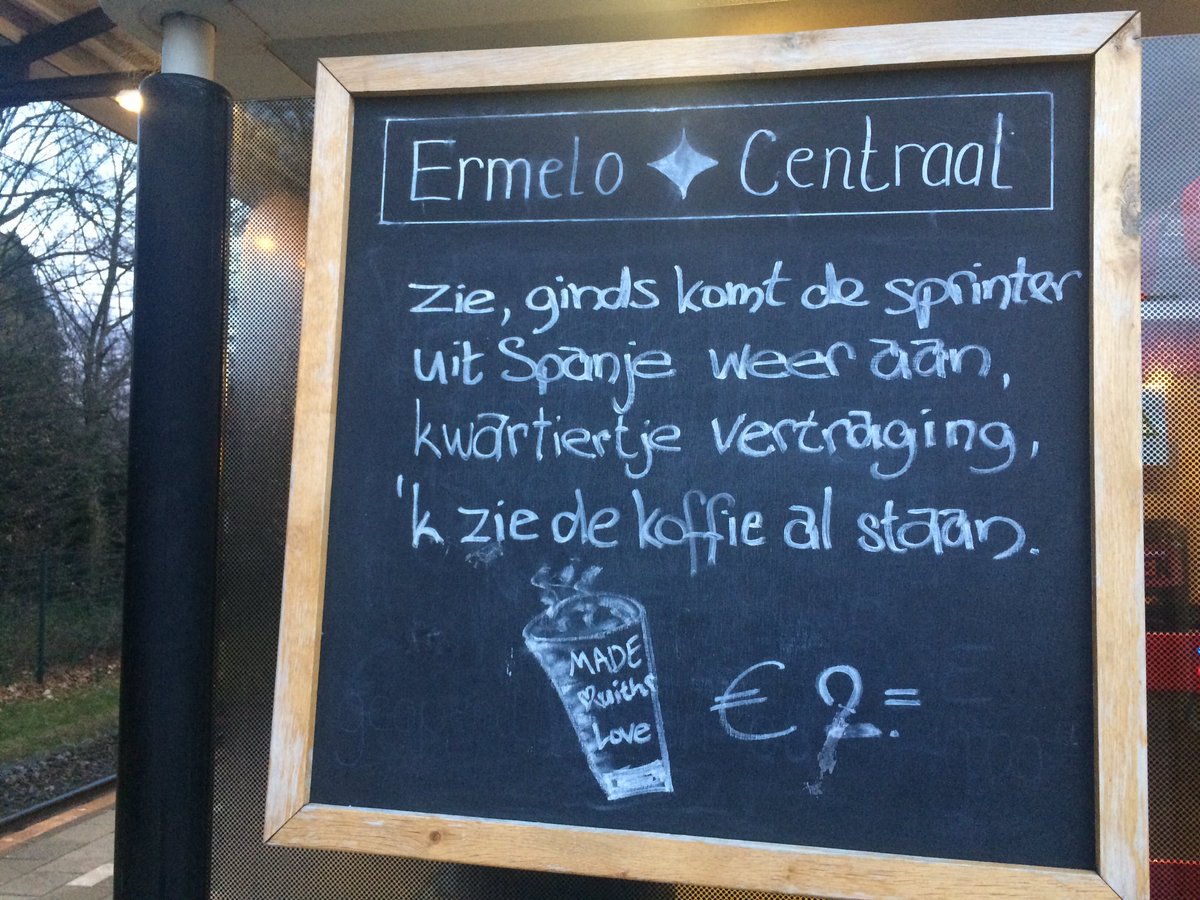 Ermelo Centraal
zie, ginds komt de sprinter
uit Spanje weer aan,
kwartiertje vertraging,
'k zie de koffie al staan.
MADE
with
Love
€ 2.=